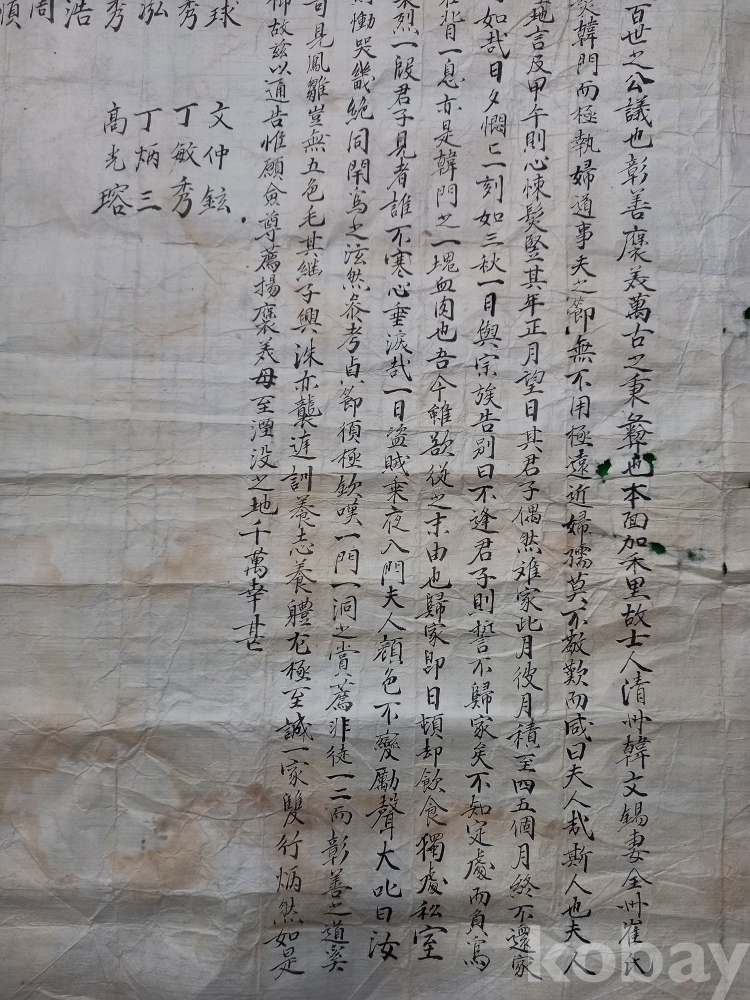 百世之公議也彰善褒美萬古之秉彝也本面加禾里故士人清州韓文錫妻全州崔氏
韓門而極執婦道事夫之節無不用極遠近婦孺莫不敬歎而咸曰夫人哉斯人也夫人
地言及甲午則心悚髮竪其年正月望日其君子偶然难家此月彼月積至四五個月終不還家
如哉日夕憫亡一刻如三秋一日與宗族告别曰不逢君子則誓不歸家矣不知定處而角寫
背一息亦是韓門之一塊血肉也吾今雖欲從之末由也歸家即日頓却飲食獨處私室
烈一般君子見者誰不寒心垂淚哉一日盜賊乘夜入門夫人顔色不變勵聲大叱曰汝
慟哭幾絶同閈爲之泫然参考貞節須極欽嘆一門一洞之當薦非徒一二而彰善之道奚
見鳳雛豈無五色毛其繼子興洙亦襲庭訓養志養軆尤極至誠一家雙行炳然如是
故玆以通告惟願僉尊薦揚褒美毋至湮没之地千萬幸甚
球 文仲鉉
秀 丁敏秀
泓 丁炳三
秀 高光瑢
浩
周
順
kobay